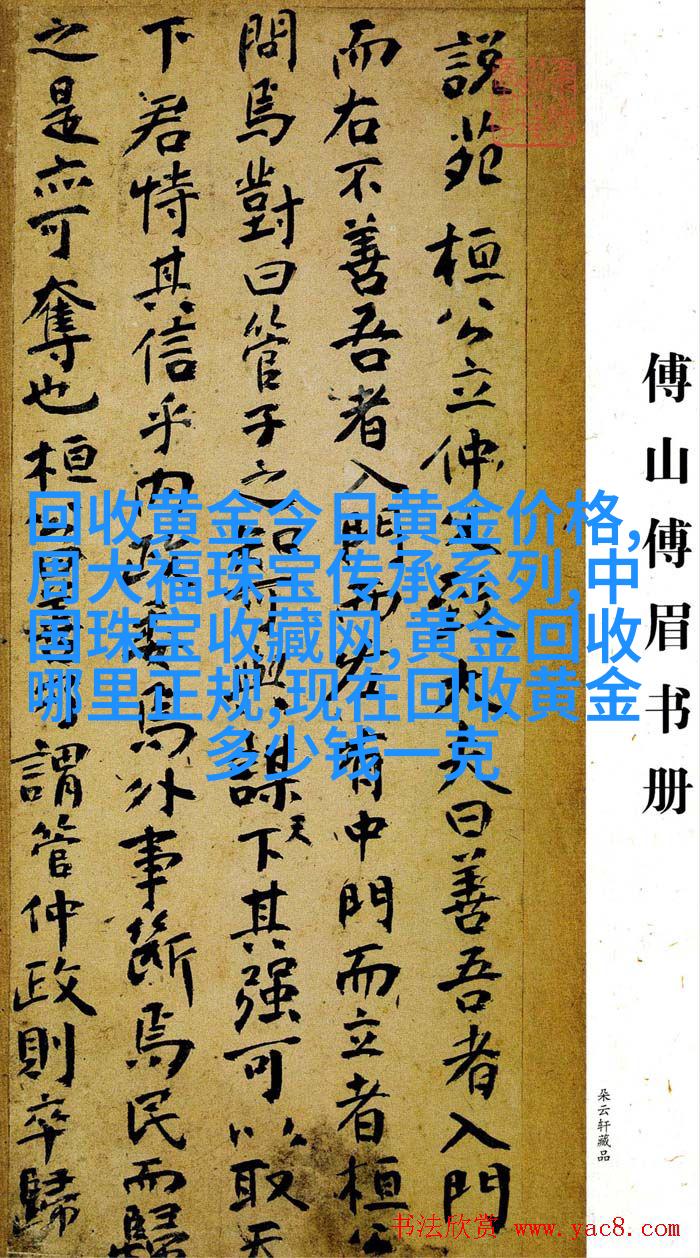 説苑 桓公立仲大夫曰善吾者入門
而右不善吾者入門而左有中門而立者桓公
問焉對曰管子之知可與謀天下其强可以取天
下君恃其信乎内政委焉外事斷焉民而歸
之是亦可奪也桓公曰善乃謂管仲政則卒歸
回收黄金今日黄金价格,
周大福珠宝传承系列,中
国珠宝收藏网,黄金回收
哪里正规,现在回收黄金
多少钱一克
傅山傅眉书册
朵云轩藏品
书法欣赏 www.yac8.com